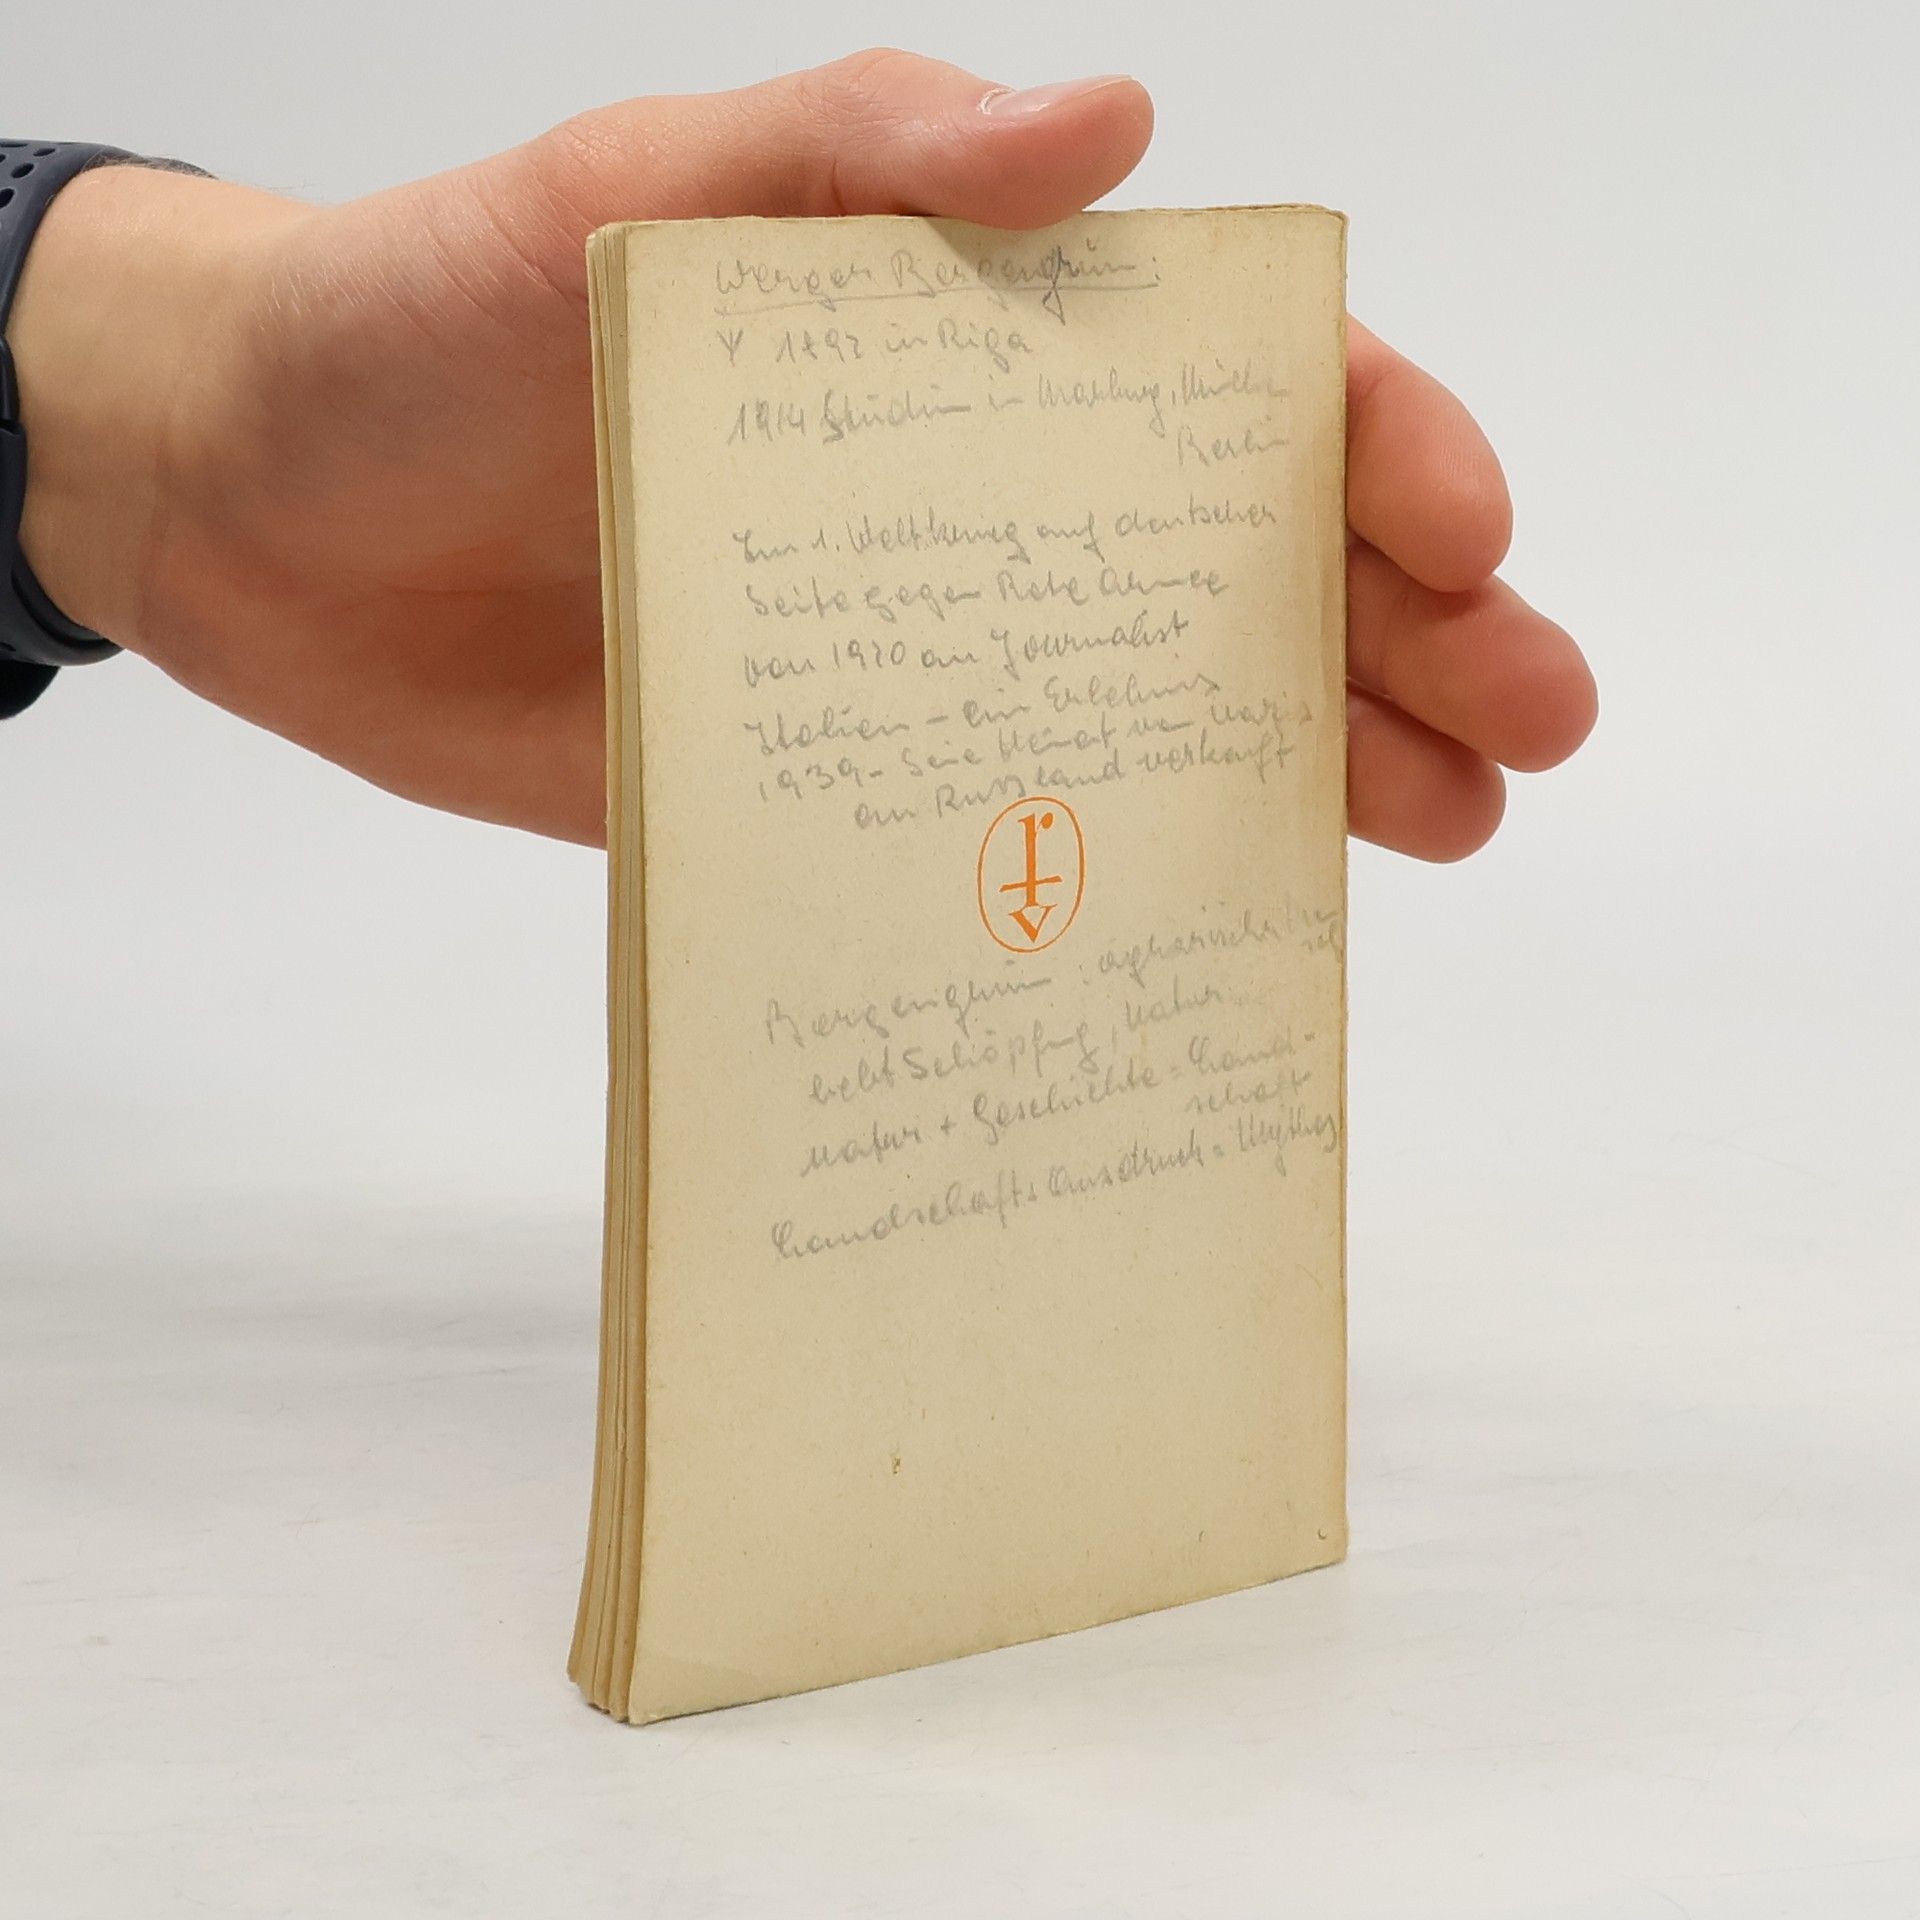 Werner Bergengrün:
1892 in Riga
1914 Studium in Marburg, München
Berlin
Im 1. Weltkrieg auf deutscher
Seite gegen Rote Armee
von 1920 an Journalist
Italien - ein Erlebnis
1939 - Seine Heimat von Nazis
an Russland verkauft
r
v
Bergengrün:
liebt Schöpfung, Natur
Natur + Geschichte = Land-
schaft
Landschafts Ausdruck = Mythos